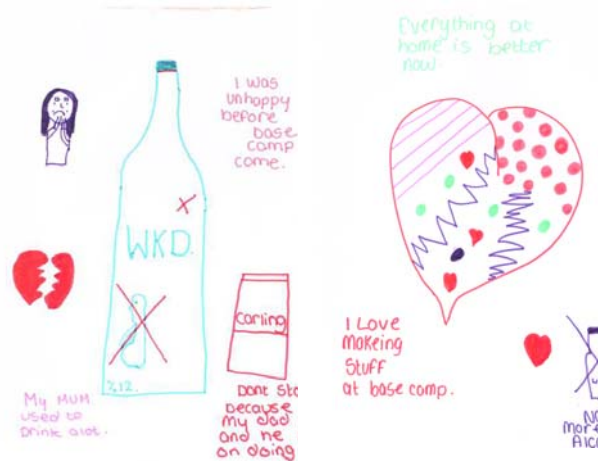 I was
unhappy
before
base
camp
come.
WKD.
%12.
My MUM
used to
Drink alot.
Carling
Dont
because
my dad
and he
on doing
Everything at
home is better
now
I Love
makeing
Stuff
at base comp.
more